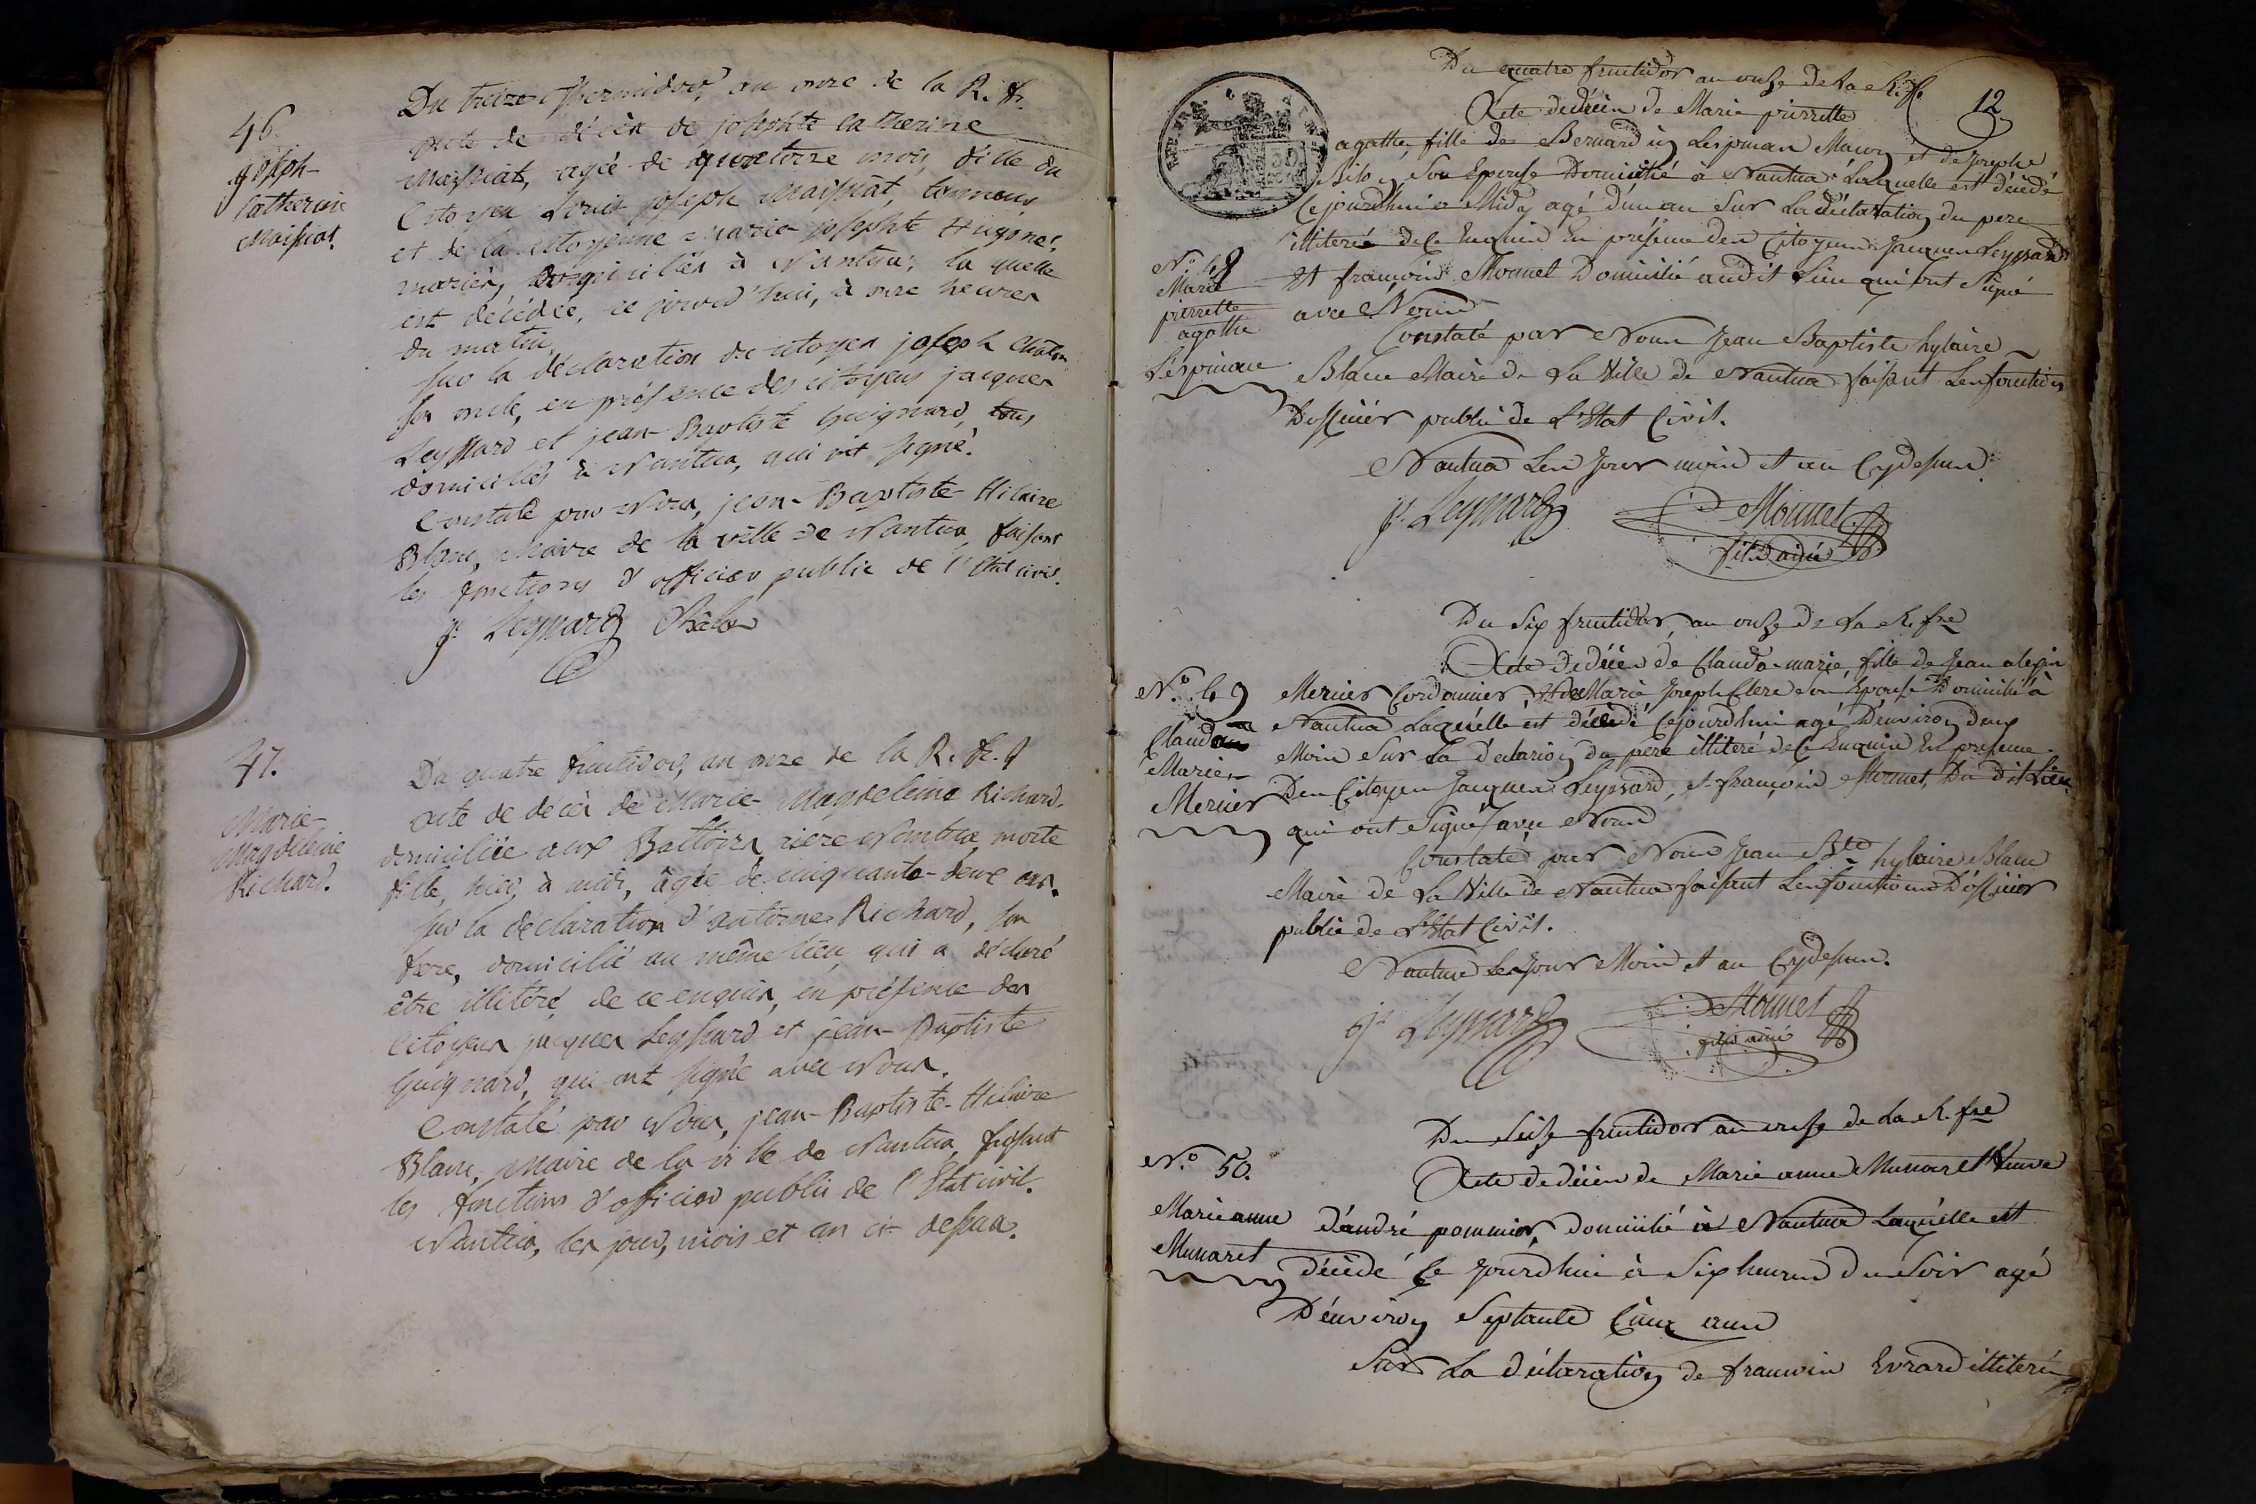 46.
Joseph-
Catherine
Maissiat.
Du treize thermidor, an onze de la R. fr.
acte de décès de josephte catherine
Maissiat, agée de quatorze mois, fille du
Citoyen Louis joseph Maissiat, tanneur,
et de la citoyenne marie josephte Hugonet,
mariés, domiciliés à Nantua, la quelle
est décédée, ce jourd'hui, à onze heures
du matin,
sur la déclaration du citoyen joseph Châlon
son oncle, en présence des citoyens jacques
Leyssard et jean-Baptiste Guignard, tous
domiciliés à Nantua, qui ont signé.
Constaté par Nous, jean-Baptiste-Hilaire
Blanc, Maire de la ville de Nantua, faisant
les fonctions d'officier public de l'Etat civil.
js. Leyssard Châlon
47.
Marie-
Magdeleine
Richard.
Du quatre fructidor, an onze de la R. fr.
acte de décès de Marie-Magdeleine Richard
domiciliée aux Battoirs riere Nantua, morte
fille, hier à midi, âgée de cinquante-deux ans.
sur la déclaration d'antoine Richard, son
frere, domicilié au même lieu, qui a déclaré
être illitéré de ce enquis, en présence des
Citoyens jacques Leyssard et jean-Baptiste
Guignard, qui ont signé avec Nous.
Constaté par Nous, jean-Baptiste-Hilaire
Blanc, Maire de la ville de Nantua, faisant
les fonctions d'officier public de l'Etat civil.
Nantua, les jour, mois et an ci-dessus.
12
Du quatre fructidor an onze de la R. fr
Acte decès de Marie pierrette
agathe, fille de Bernardin Lespinasse Maçon et de Josephe
son Epouse Domicilié à Nantua Laquelle est décédé
Cejourdhui à Midy agé d'un an Sur La déclaration du pere
illiteré de ce Enquis En présence des Citoyens Jacques Leyssard
Et françois Monnet Domicilié audit Lieu qui ont Signé
avec Nous
N.o 48
Marie
pierrette
agathe
Constaté par Nous Jean Baptiste hylaire
Blanc Maire de La Ville de Nantua faisant Les fonctions
D'officier public de L'Etat Civil.
Nantua Les Jour mois et an Cydessus
js. Leyssard Monnet
fils ainé
Du Six fructidor, an onze de La R. fre
Acte de décès de Claude-marie, fille de Jean alexis
Mercier Cordonnier et de Marie Joseph Clerc son Epouse Domicilié à
Nantua Laquelle est décédé Cejourdhui agé D'environ deux
Mois Sur La Declarion du pere illiteré de ce Enquis En presence
Des Citoyen Jacques Leyssard, et françois Monnet, Du dit Lieu
qui ont Signé avec Nous
N.o 49
Claude
Marie
Mercier
Constaté par Nous Jean Bte hylaire Blanc
Maire de La Ville de Nantua faisant Les fonctions D'officier
public de L'Etat Civil.
Nantua Les Jour Mois et an Cydessus.
js. Leyssard Monnet
fils ainé
Du Seize fructidor an onze de La R. fre
N.o 50.
Marie anne
Munaret
Acte de décès de Marie anne Munaret Veuve
d'andré pommier, domicilié à Nantua Laquelle est
décédé Ce Jourdhui à Six heures du Soir agé
D'environ Septante Cinq ans
Sur La déclaration de francois Evrard illiteré